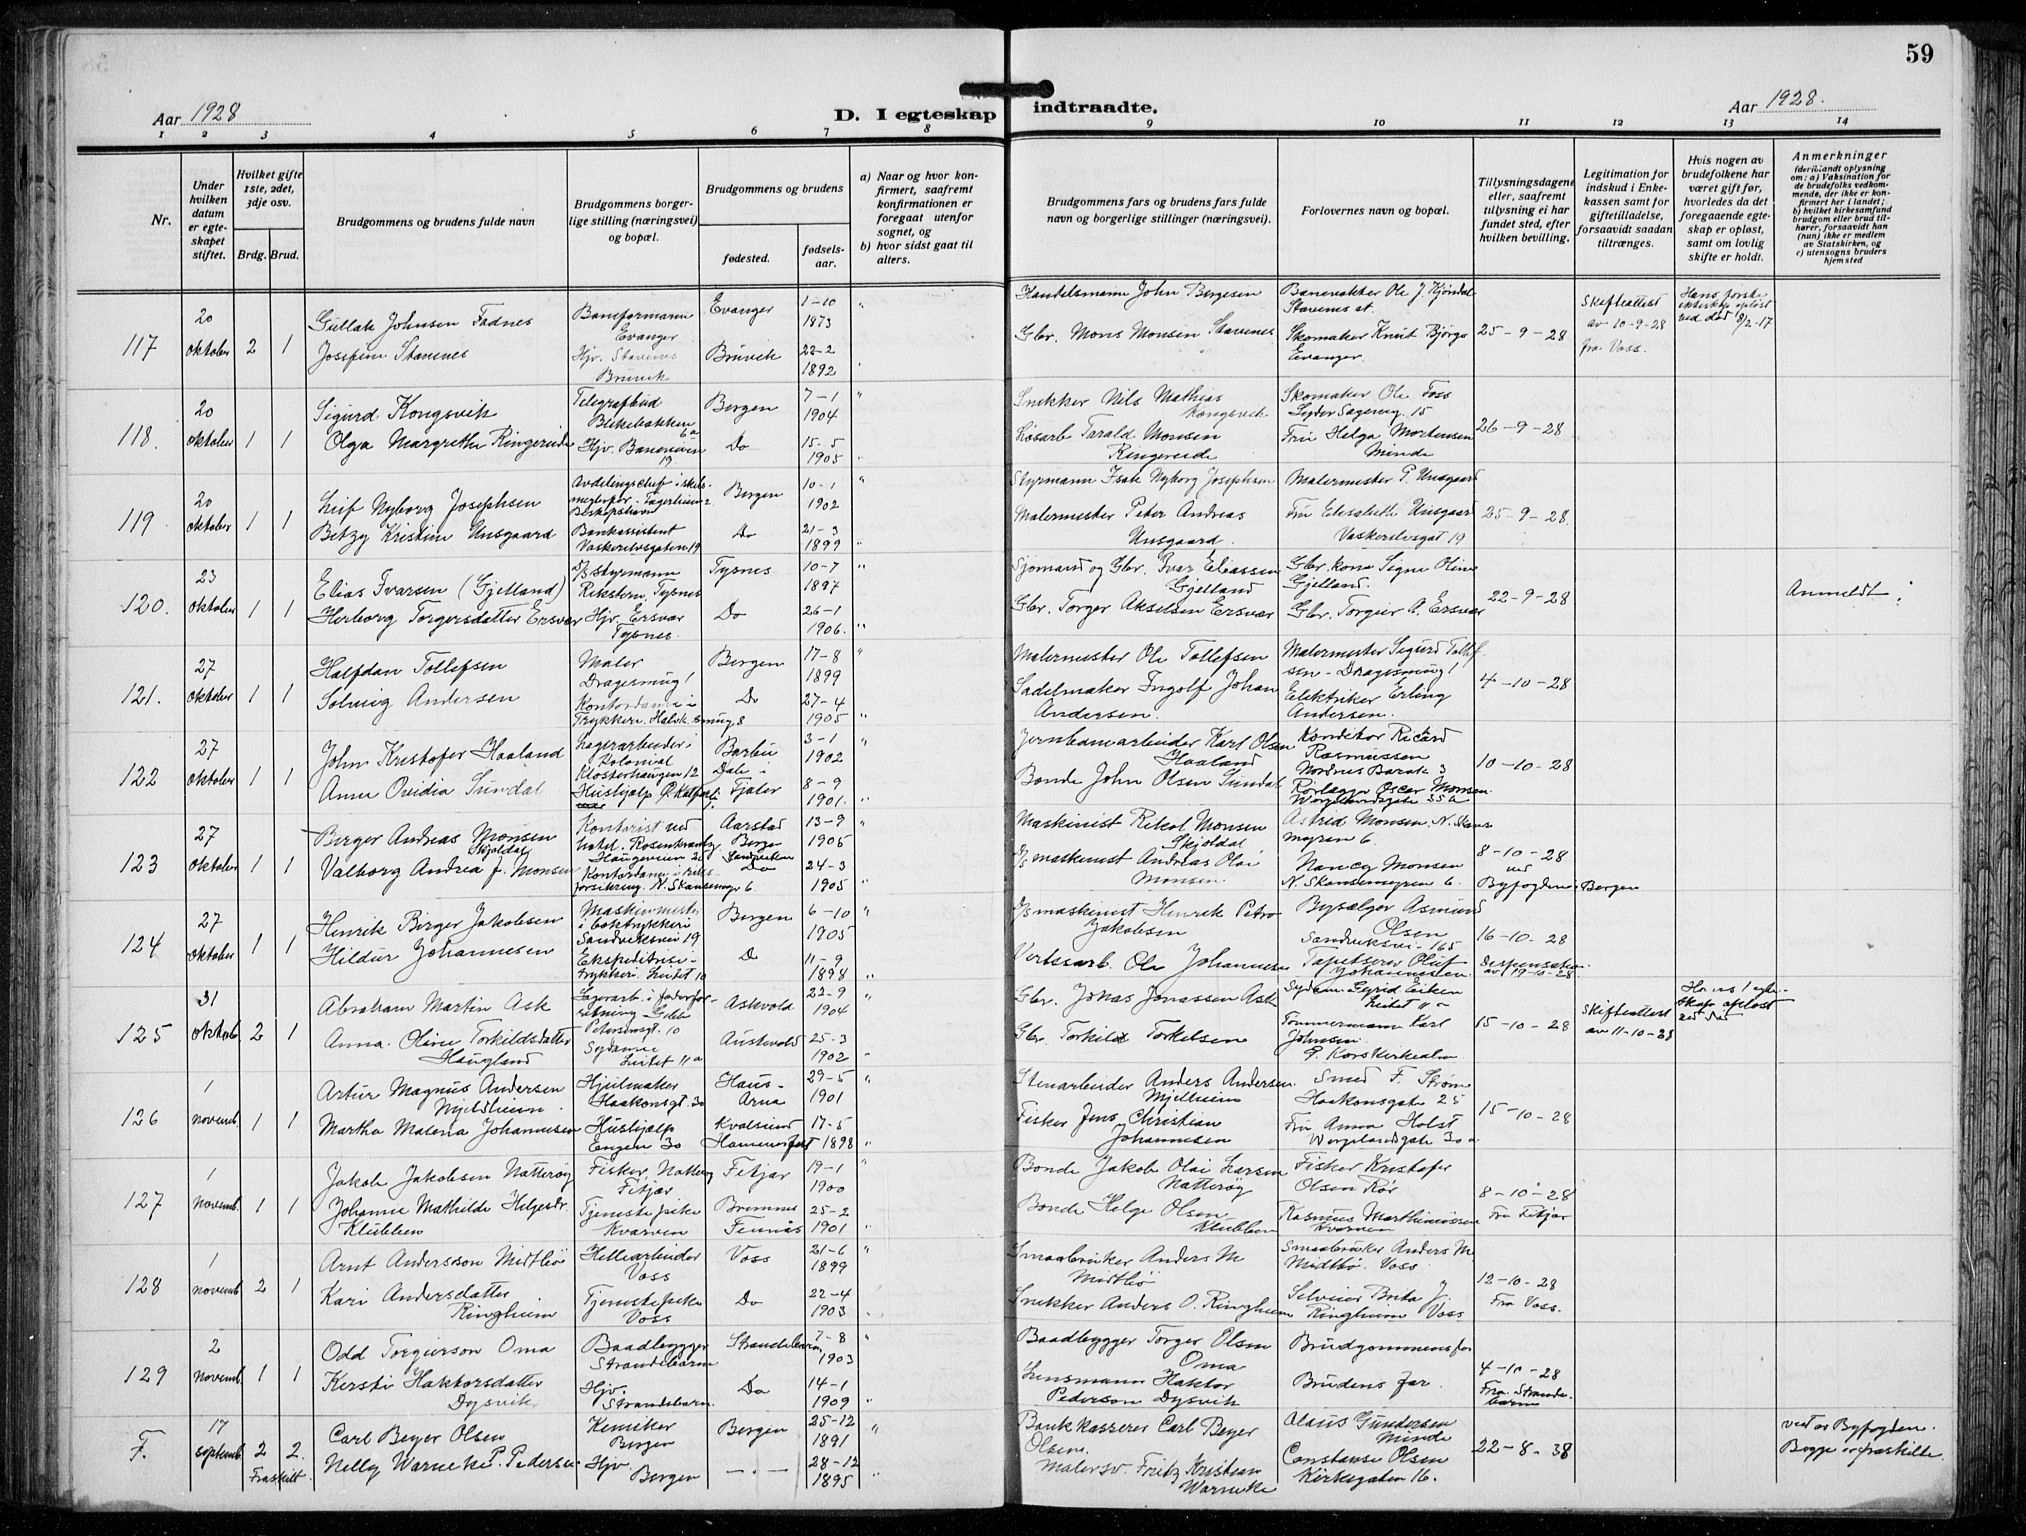 59
Aar 1928
D. I egteskap indtraadte.
Aar 1928.
1 2 3 4 5 6 7 8 9 10 11 12 13 14
Nr.
Under hvilken datum er egteskapet stiftet.
Hvilket gifte 1ste, 2det, 3dje osv.
Brdg. Brud.
Brudgommens og brudens fulde navn
Brudgommens borgerlige stilling (næringsvei) og bopæl.
Brudgommens og brudens
fødested.
fødselsaar.
a) Naar og hvor konfirmert, saafremt konfirmationen er foregaat utenfor sognet, og
b) hvor sidst gaat til alters.
Brudgommens fars og brudens fars fulde navn og borgerlige stillinger (næringsvei).
Forlovernes navn og bopæl.
Tillysningsdagene eller, saafremt tillysning ei har fundet sted, efter hvilken bevilling.
Legitimation for indskud i Enkekassen samt for giftetilladelse, forsaavidt saadan tiltrænges.
Hvis nogen av brudefolkene har været gift før, hvorledes da det foregaaende egteskap er opløst, samt om lovlig skifte er holdt.
Anmerkninger
(deriblandt oplysning om: a) Vaksination for de brudefolks vedkommende, der ikke er konfirmert her i landet; b) hvilket kirkesamfund brudgom eller brud tilhører, forsaavidt han (hun) ikke er medlem av Statskirken, og c) utensogns bruders hjemsted
117 20 oktober 2 1
Gullak Johnsen Fadnes
Baneformann Evanger
Evanger 1-10 1873
Handelsmann John Bergesen
Banevakter Ole J. Kjøndal Stavenes st.
Josefine Stavenes
Hjv. Stavenes Bruvik
Bruvik 22-2 1892
Gbr. Mons Monsen Stavenes
Skomaker Knut Bjørgo Evanger.
25-9-28
Skifteattest av 10-9-28 fra Voss.
Hans første ekteskap opløst ved død 8/2-17
118. 20 oktober 1 1
Sigurd Kongsvik
Telegrafbud Blekebakken 6a
Bergen 7-1 1904
Snekker Nils Mathias Kongsvik
Skomaker Ole Foss 15
Olga Margrethe Ringereide
Hjv. Baneveien 19
Do 15-5 1905
Løsarb. Tarald Monsen Ringereide
Fru Helga Mortensen Minde
26-9-28
119 20 oktober 1 1
Leif Nyborg Josephsen
Avdelingschef i skibsmeglerfor.
Bergen 10-1 1902
Styrmann Isak Nyborg Josephsen
Malermester P. Unsgaard
Betzy Kristine Unsgaard
Bankassistent Vaskerelvsgaten 19
Do 21-3 1899
Malermester Peter Andreas Unsgaard.
Fru Elisabeth Unsgaard Vaskerelvsgat 19
25-9-28.
120. 23 oktober 1 1
Elias Ivarsen (Gjelland)
D/S styrmann Rekstern, Tysnes
Tysnes 10-7 1897
Sjømand og Gbr. Ivar Eliassen Gjelland
Gbr. kona Signe Oline Gjelland.
Herborg Torgersdatter Ersvær
Hjv. Ersvær Tysnes.
Do 26-1 1906.
Gbr. Torger Akselsen Ersvær
Gbr. Torger A. Ersvær
22-9-28
Anmeldt.
121. 27 oktober 1 1
Halfdan Tollefsen
Maler Dragesmug 1
Bergen 17-8 1899
Malermester Ole Tollefsen
Malermester Sigurd Tollefsen - Dragesmug 1
Solveig Andersen
Kontordame i Trykkeri. smug 8
Do 27-4 1905
Sadelmaker Ingolf Johan Andersen.
Elektriker Erling Andersen.
4-10-28
122 27 oktober 1 1
John Kristofer Haaland
Lagerarbeider i Kolonial Klosterhaugen 12
Barbu 3-1 1902
Jernbanearbeider Karl Olsen Haaland
Konditor Ricard Rasmussen Nordnes Barak 3
Anna Ovidia Sundal
Hushjælp
Dale i Fjaler 8-9 1901.
Bonde John Olsen Sundal
Rørlægger Oscar Monsen. Wergelandsgate 35 a
10-10-28
123 27 oktober 1 1
Berger Andreas Monsen Skjoldal
Kontorist ved Hotel Rosenkrantz Haugeveien 28
Aarstad Bergen 13-9 1905
Maskinist Rikol Monsen Skjoldal
Astrid Monsen. N. Skansemyren 6.
Valborg Andrea J. Monsen
Kontordame i forsikring. N. Skansemyr 6.
Do 24-3 1905
D/S maskinist Andreas Olai Monsen.
Nancy Monsen N. Skansemyren 6.
8-10-28 ved Byfogden i Bergen
124 27 oktober 1 1
Henrik Berger Jakobsen
Maskinmester i boktrykkeri Sandviksvei 19
Bergen 6-10 1905
D/S maskinist Henrik Petro Jakobsen
Bysælger Asmund Olsen Sandviksvei. 165
Hildur Johannesen
Ekspeditrise i trykkeri.
Do 11-9 1898
Verkssarb. Ole Johannesen
Tapetserer Oluf Johannessen.
16-10-28
Dispensation av 19-10-28
125 31 oktob. 2 1
Abraham Martin Ask
Lagerarb. i
Askvold 22-9 1904
Gbr. Jonas Jonassen Ask
Sydam. Gyrid Eiken
Anna Oline Torkildsdatter Haugland
Sydame
Austevold 25-3 1902
Gbr. Torkild Torkelsen
Tømmermann Karl Johnsen
15-10-28
Skifteattest av 11-10-28
Hans 1 egteskap opløst ved død
126 1 novemb. 1 1
Artur Magnus Andersen Mjeldheim.
Hjulmaker Haakonsgt. 30
Haus - Arna 29-5 1901
Stenarbeider Anders Andersen. Mjelheim
Smed F. Strøm Haakonsgate 25
Martha Matena Johannesen
Hushjælp Engen 30
Kvalsund Hammerfest 17-5 1898
Fisker Jens Christian Johannesen
Fru Anna Holst Wergelandsgate 30 a
15-10-28
127 1 novemb. 1 1
Jakob Jakobsen Natterøy
Fisker, Natterøy Fitjar
Fitjar 19-1 1900
Bonde Jakob Olai Larsen Natterøy
Fisker Kristofer Olsen Rør
Johanne Mathilde Helgesdr. Klubben
Tjenestepike Kvarven
Bremnes 25-2 1901
Bonde Helge Olsen Klubben
Rasmus Marthinussen Kvarven
8-10-28 Fra Fitjar
128 1 novemb. 2 1
Arnt Andersson Midtbø
Hellearbeider Voss
Voss 21-6 1899
Smaabruker Anders M. Midtbø
Smaabruker Anders M. Midtbø. Voss
Kari Andersdatter Ringheim
Tjenestepike Voss
Do 22-4 1903
Snekker Anders O. Ringheim
Brita J. Ringheim Voss
12-10-28 Fra Voss.
129 2 novemb. 1 1
Odd Torgierson Oma
Baadbygger Strandebarm
Strandebarm 7-8 1903
Baadbygger Torger Olsen Oma
Brudgommens far
Kersti Haktorsdatter Dysvik
Hjv. Strandebarm.
Do 14-1 1909
Lensmann Haktor Pederson Dysvik
Brudens far.
4-10-28 Fra Strandebarm
F. 17 septemb. 2 2. Fraskilt.
Carl Beyer Olsen
Kemiker Bergen
Bergen 25-12 1891
Bankkasserer Carl Beyer Olsen.
Olaus Gundersen Minde
Nelly Warneke P. Pedersen
Hjv. Bergen
-.- 28-12 1895
Malersv. Fritz Kristian Warneke
Constanse Olsen Kirkegaten 16.
22-8-38
viet av Byfogden. Begge er fraskilte.